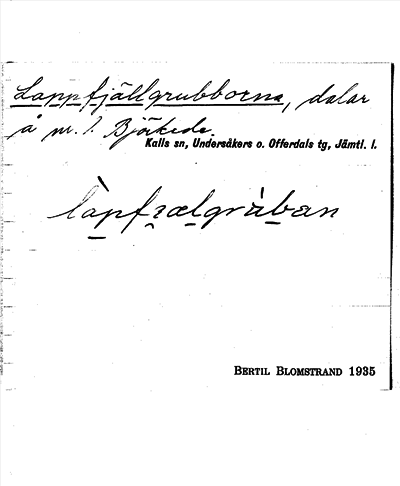 Lappfjällgrubborna, dalar
å nr. 1. Björkede.
Kalls sn, Undersåkers o. Offerdals tg, Jämtl. l.
làpfɪælgrùban
BERTIL BLOMSTRAND 1935